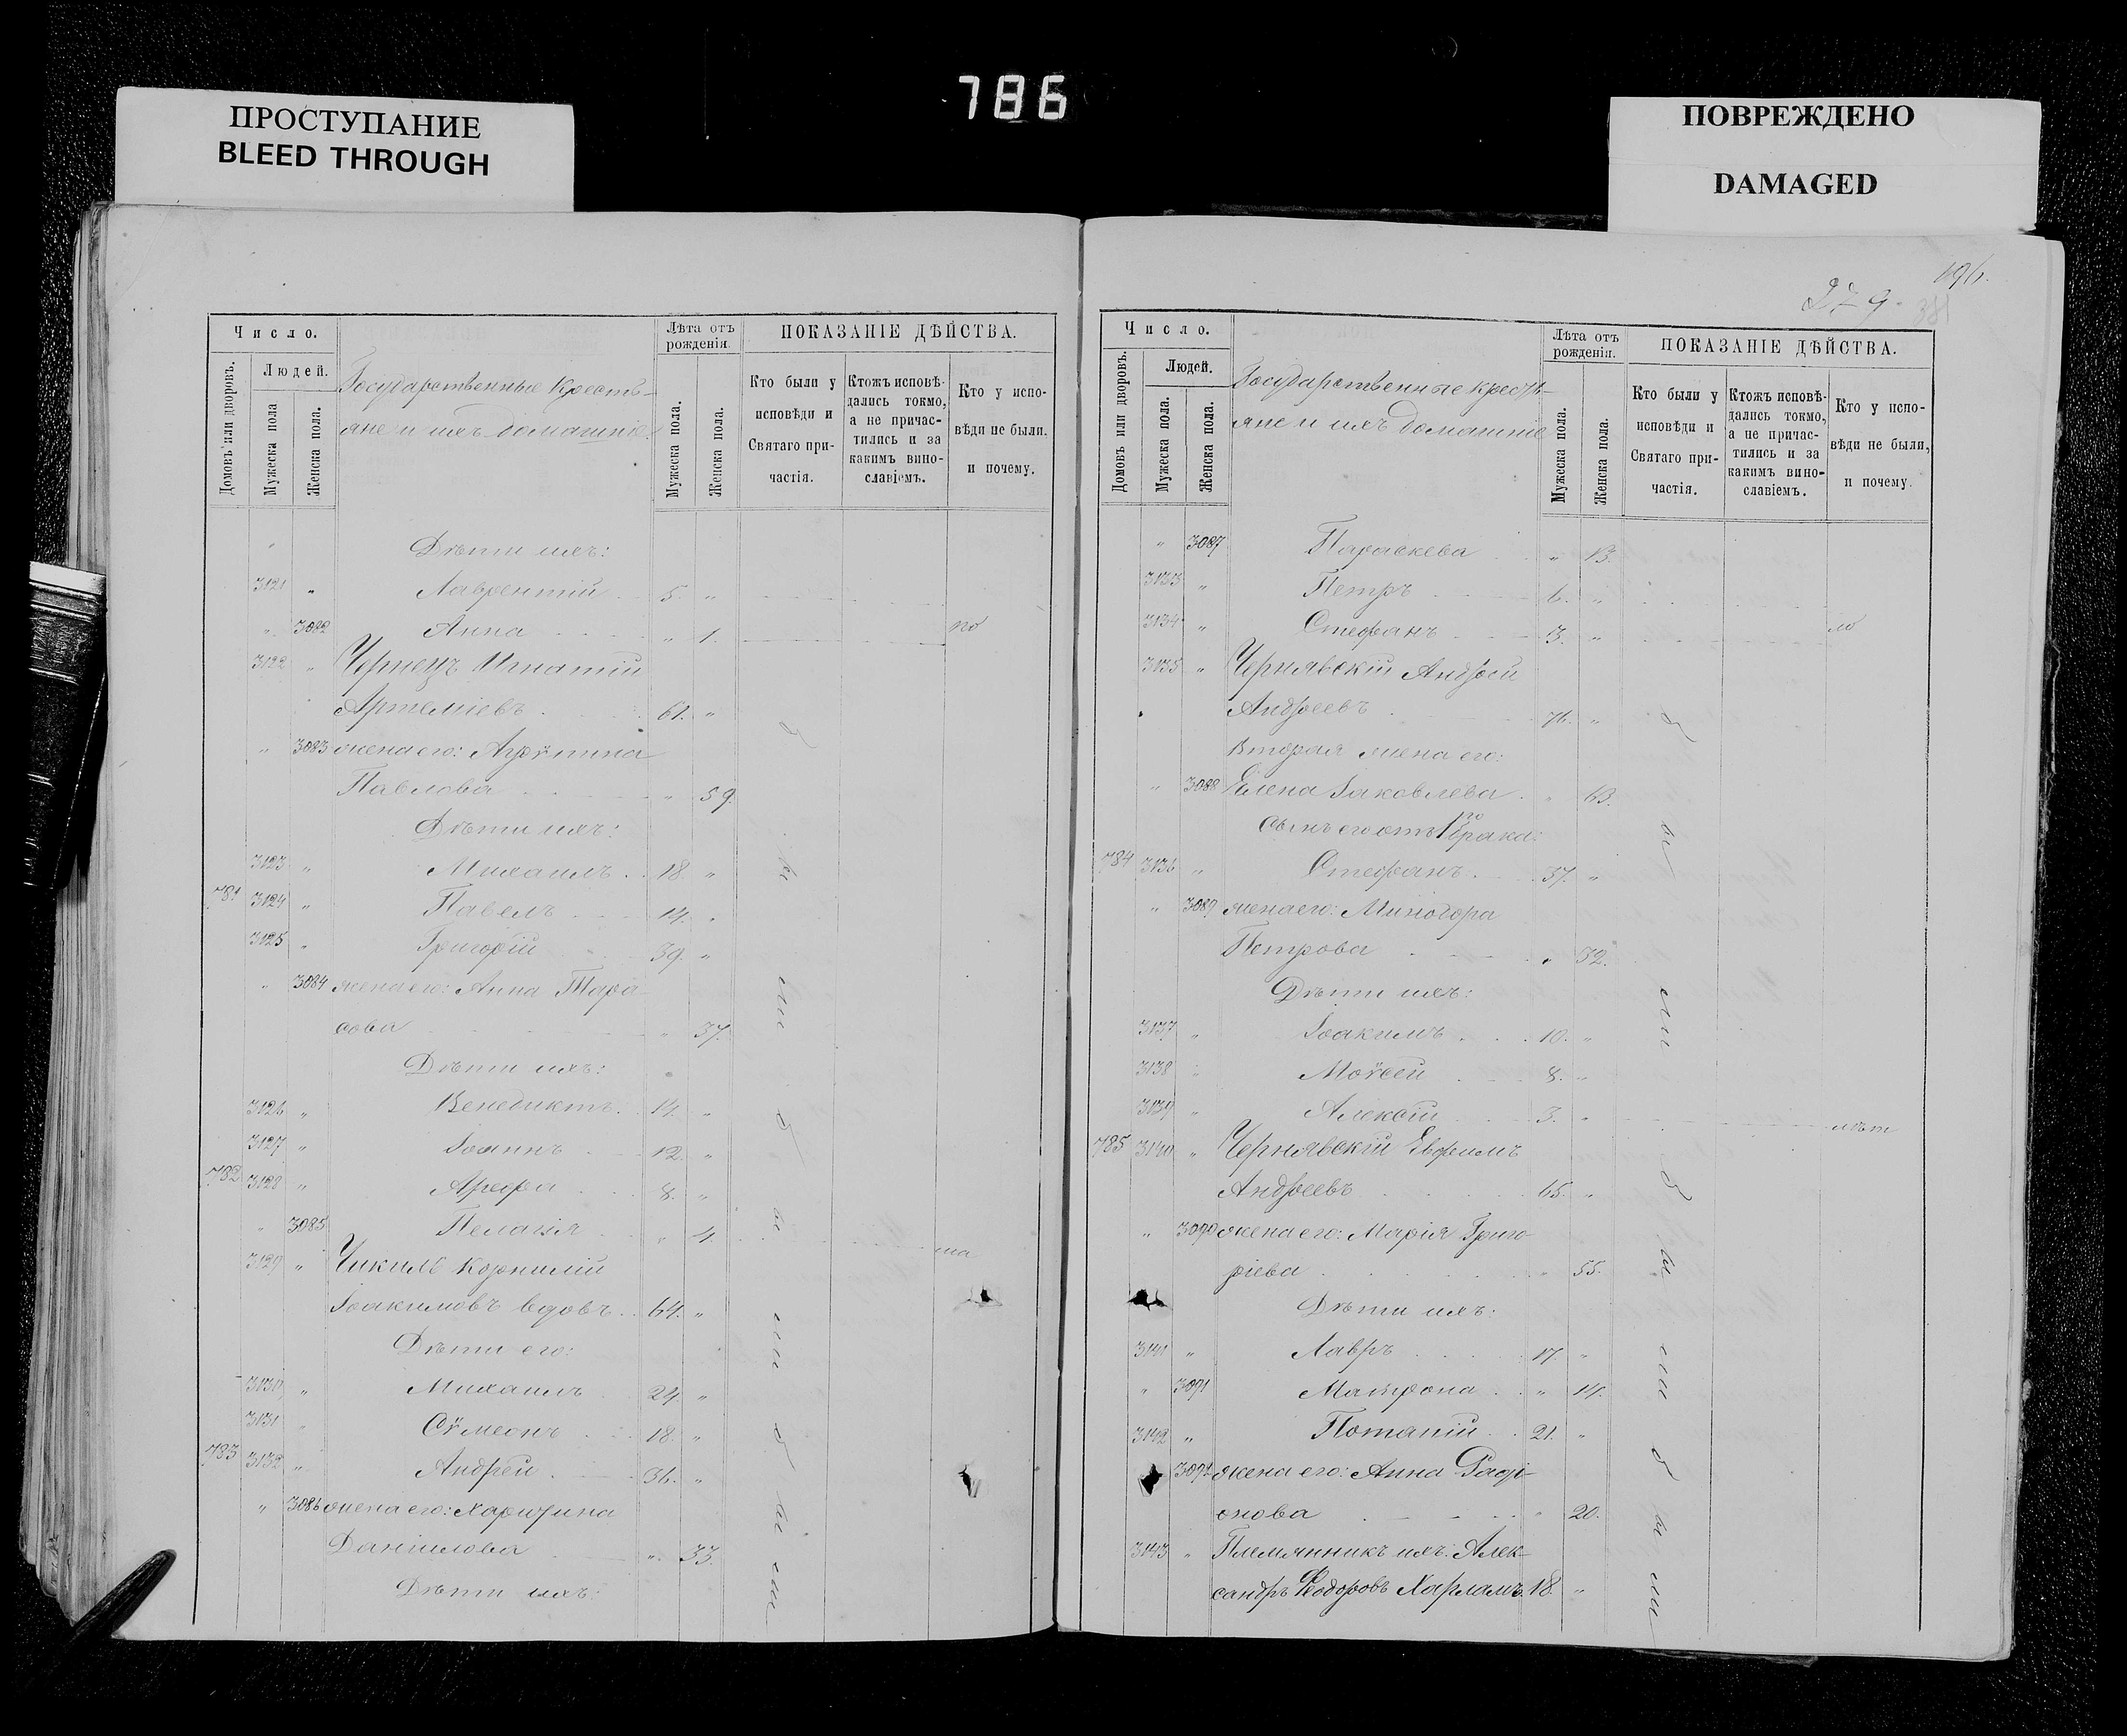 786
ПРОСТУПАНИЕ
BLEED THROUGH
ПОВРЕЖДЕНО
DAMAGED
Число.
Домовъ или дворовъ.
Людей.
Мужеска пола
Женска пола.
Государственные кресть-
яне и ихъ домашніе.
Лѣта отъ рожденія.
Мужеска пола.
Женска пола.
ПОКАЗАНІЕ ДѢЙСТВА.
Кто были у исповѣди и Святаго причастія.
Ктожъ исповѣдались токмо, а не причастились и за какимъ винославіемъ.
Кто у исповѣди не были. и почему.
" Дѣти ихъ:
3121 " Лаврентій 5. "
" 3082 Анна " 1. по
3122 " Чернецъ Игнатій
Артеміевъ 61. "
" 3083 жена его: Агрѵпина
Павлова " 59.
Дѣти ихъ:
3123 " Михаилъ 18 "
781 3124 " Павелъ 14. "
3125 " Григорій 39. "
" 3084 жена его: Анна Тара-
сова " 37.
Дѣти ихъ:
3126 " Венедиктъ 14. "
3127 " Іоаннъ 12. "
782 3128 " Арефа 8. "
" 3085 Пелагія " 4.
3129 " Чикилъ Корнилій
Іоакимовъ вдовъ 64. "
Дѣти его:
3130 " Михаилъ 24. "
3131 " Сѵмеонъ 18. "
783 3132 " Андрей 36. "
" 3086 жена его: Харитина
Даніилова " 33.
Дѣти ихъ:
б
ы
ли
б
ы
ли
б
ы
ли
196.
279.
Число.
Домовъ или дворовъ.
Людей.
Мужеска пола.
Женска пола.
Государственные кресть-
яне и ихъ домашніе
Лѣта отъ рожденія.
Мужеска пола.
Женска пола.
ПОКАЗАНІЕ ДѢЙСТВА.
Кто были у исповѣди и Святаго причастія.
Ктожъ исповѣдались токмо, а не причастились и за какимъ винославіемъ.
Кто у исповѣди не были, и почему.
" 3087 Параскева " 13.
3133 " Петръ 6. "
3134 " Стефанъ 3. "
3135 " Чернявскій Андрей
Андреевъ 76. "
Вторая жена его:
" 3088 Елена Іаковлева " 63.
Сынъ его отъ 1го брака:
784 3136 " Стефанъ 37. "
" 3089 жена его: Минодора
Петрова " 32.
Дѣти ихъ:
3137 " Іоакимъ 10. "
3138 " Моѵсей 8. "
3139 " Алексій 3. " лѣт
785 3140 " Чернявскій Евфимъ
Андреевъ 65. "
" 3090 жена его: Марія Григо-
ріева " 55.
Дѣти ихъ:
3141 " Лавръ 17. "
" 3091 Матрона " 14.
3142 " Потапій 21. "
3092 жена его: Анна Радi-
онова " 20.
3143 " Племянникъ ихъ: Алек-
сандръ Ѳеодоровъ Харламъ 18. "
б
ы
ли
б
ы
ли
б
ы
ли